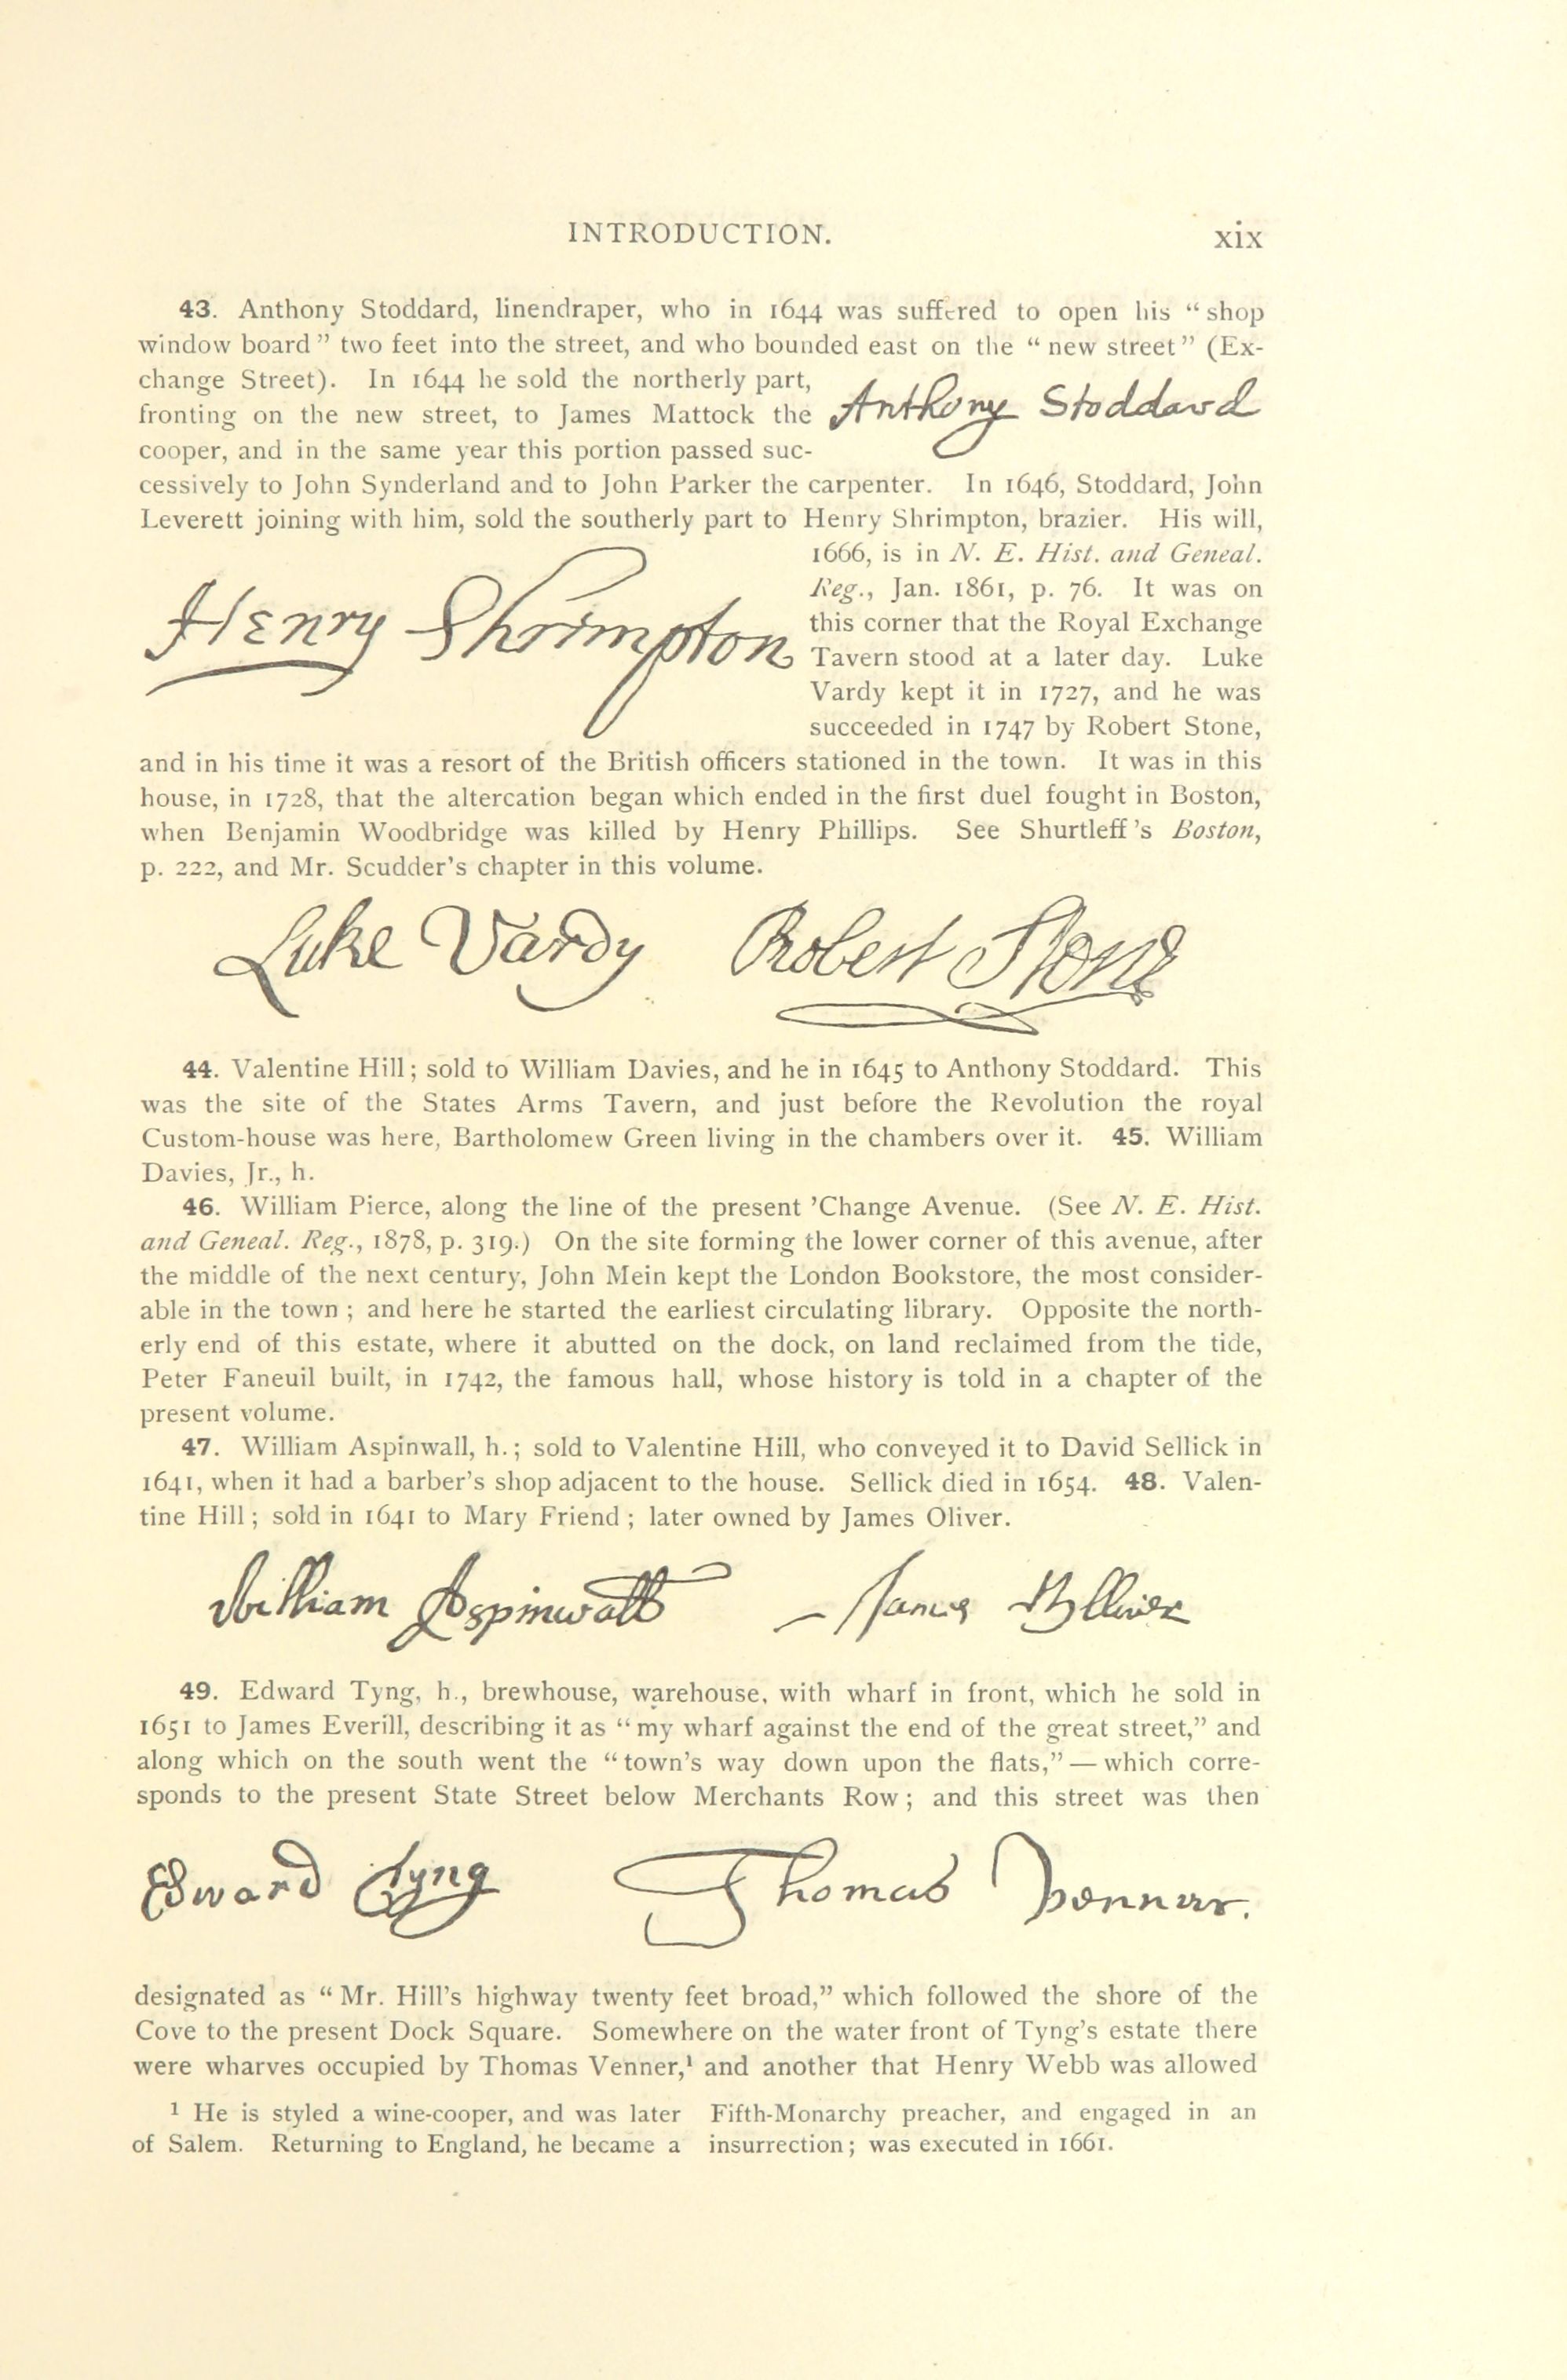 INTRODUCTION. xix
43. Anthony Stoddard, linendraper, who in 1644 was suffered to open his “shop
window board” two feet into the street, and who bounded east on the “new street” (Ex-
change Street). In 1644 he sold the northerly part,
fronting on the new street, to James Mattock the
cooper, and in the same year this portion passed suc-
Anthony Stoddard
cessively to John Synderland and to John Parker the carpenter. In 1646, Stoddard, John
Leverett joining with him, sold the southerly part to Henry Shrimpton, brazier. His will,
Henry Shrimpton
1666, is in N. E. Hist. and Geneal.
Reg., Jan. 1861, p. 76. It was on
this corner that the Royal Exchange
Tavern stood at a later day. Luke
Vardy kept it in 1727, and he was
succeeded in 1747 by Robert Stone,
and in his time it was a resort of the British officers stationed in the town. It was in this
house, in 1728, that the altercation began which ended in the first duel fought in Boston,
when Benjamin Woodbridge was killed by Henry Phillips. See Shurtleff's Boston,
p. 222, and Mr. Scudder's chapter in this volume.
Luke Vardy Robert Stone
44. Valentine Hill; sold to William Davies, and he in 1645 to Anthony Stoddard. This
was the site of the States Arms Tavern, and just before the Revolution the royal
Custom-house was here, Bartholomew Green living in the chambers over it. 45. William
Davies, Jr., h.
46. William Pierce, along the line of the present 'Change Avenue. (See N. E. Hist.
and Geneal. Reg., 1878, p. 319.) On the site forming the lower corner of this avenue, after
the middle of the next century, John Mein kept the London Bookstore, the most consider-
able in the town; and here he started the earliest circulating library. Opposite the north-
erly end of this estate, where it abutted on the dock, on land reclaimed from the tide,
Peter Faneuil built, in 1742, the famous hall, whose history is told in a chapter of the
present volume.
47. William Aspinwall, h.; sold to Valentine Hill, who conveyed it to David Sellick in
1641, when it had a barber's shop adjacent to the house. Sellick died in 1654. 48. Valen-
tine Hill; sold in 1641 to Mary Friend; later owned by James Oliver.
William Aspinwall James Olliver
49. Edward Tyng, h., brewhouse, warehouse, with wharf in front, which he sold in
1651 to James Everill, describing it as “my wharf against the end of the great street,” and
along which on the south went the “town's way down upon the flats,”—which corre-
sponds to the present State Street below Merchants Row; and this street was then
Edward Tyng Thomas Venner.
designated as “Mr. Hill's highway twenty feet broad,” which followed the shore of the
Cove to the present Dock Square. Somewhere on the water front of Tyng's estate there
were wharves occupied by Thomas Venner,¹ and another that Henry Webb was allowed
¹ He is styled a wine-cooper, and was later
of Salem. Returning to England, he became a
Fifth-Monarchy preacher, and engaged in an
insurrection; was executed in 1661.